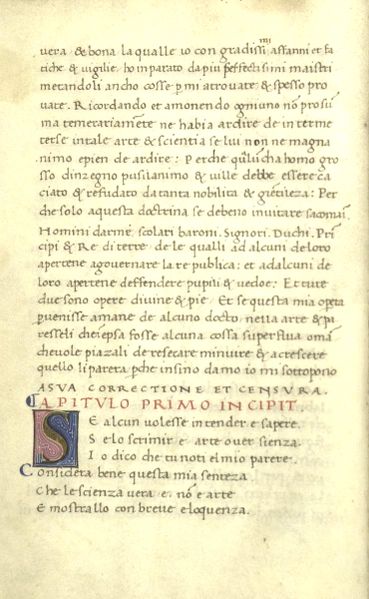 vera & bona la qualle io con gradissimi affanni et fa
tiche & vigilie ho inparato da piu perfectissimi maistri
metandoli ancho cosse per mi atrovate & spesso pro
vate. Ricordando et amonendo ogniuno nō prosu
ma temerariamēte ne habia ardire de interme
terse in tale arte & scientia se lui non ne magna
nimo e pien de ardire: Perche qũlũcha homo gro
sso dinzegno pusilanimo & ville debbe essere ca
ciato & refudato da tanta nobilita & gietileza: Per
che solo a questa doctrina se debeno invitare sacomani
Homini darme, scolari baroni. Signori. Duchi. Prī
cipi & Re di terre de le qualli ad alcuni de loro
apertene a governare la re publica: et ad alcuni de
loro apertene deffendere pupili & vedoe: Et tute
due sono opere divine & pie. Et se questa mia opeta
pvenisse a mane de alcuno docto nella arte & pa
resseli che in epsa fosse alcuna cossa superflua o mā
chevole piazali de resecare minuire & acrescere
quello li parera pche insino da mo io mi sottoponio
A SVA CORRECTIONE ET CENSURA.
CAPITULO PRIMO INCIPIT.
SE alcun volesse intender e sapere.
Se lo scrimir e arte o ver sienza.
Io dico che tu noti el mio parere.
Considera bene questa mia sentēza
Che le scienza vera e nō e arte
E mostrallo con breve eloquenza.